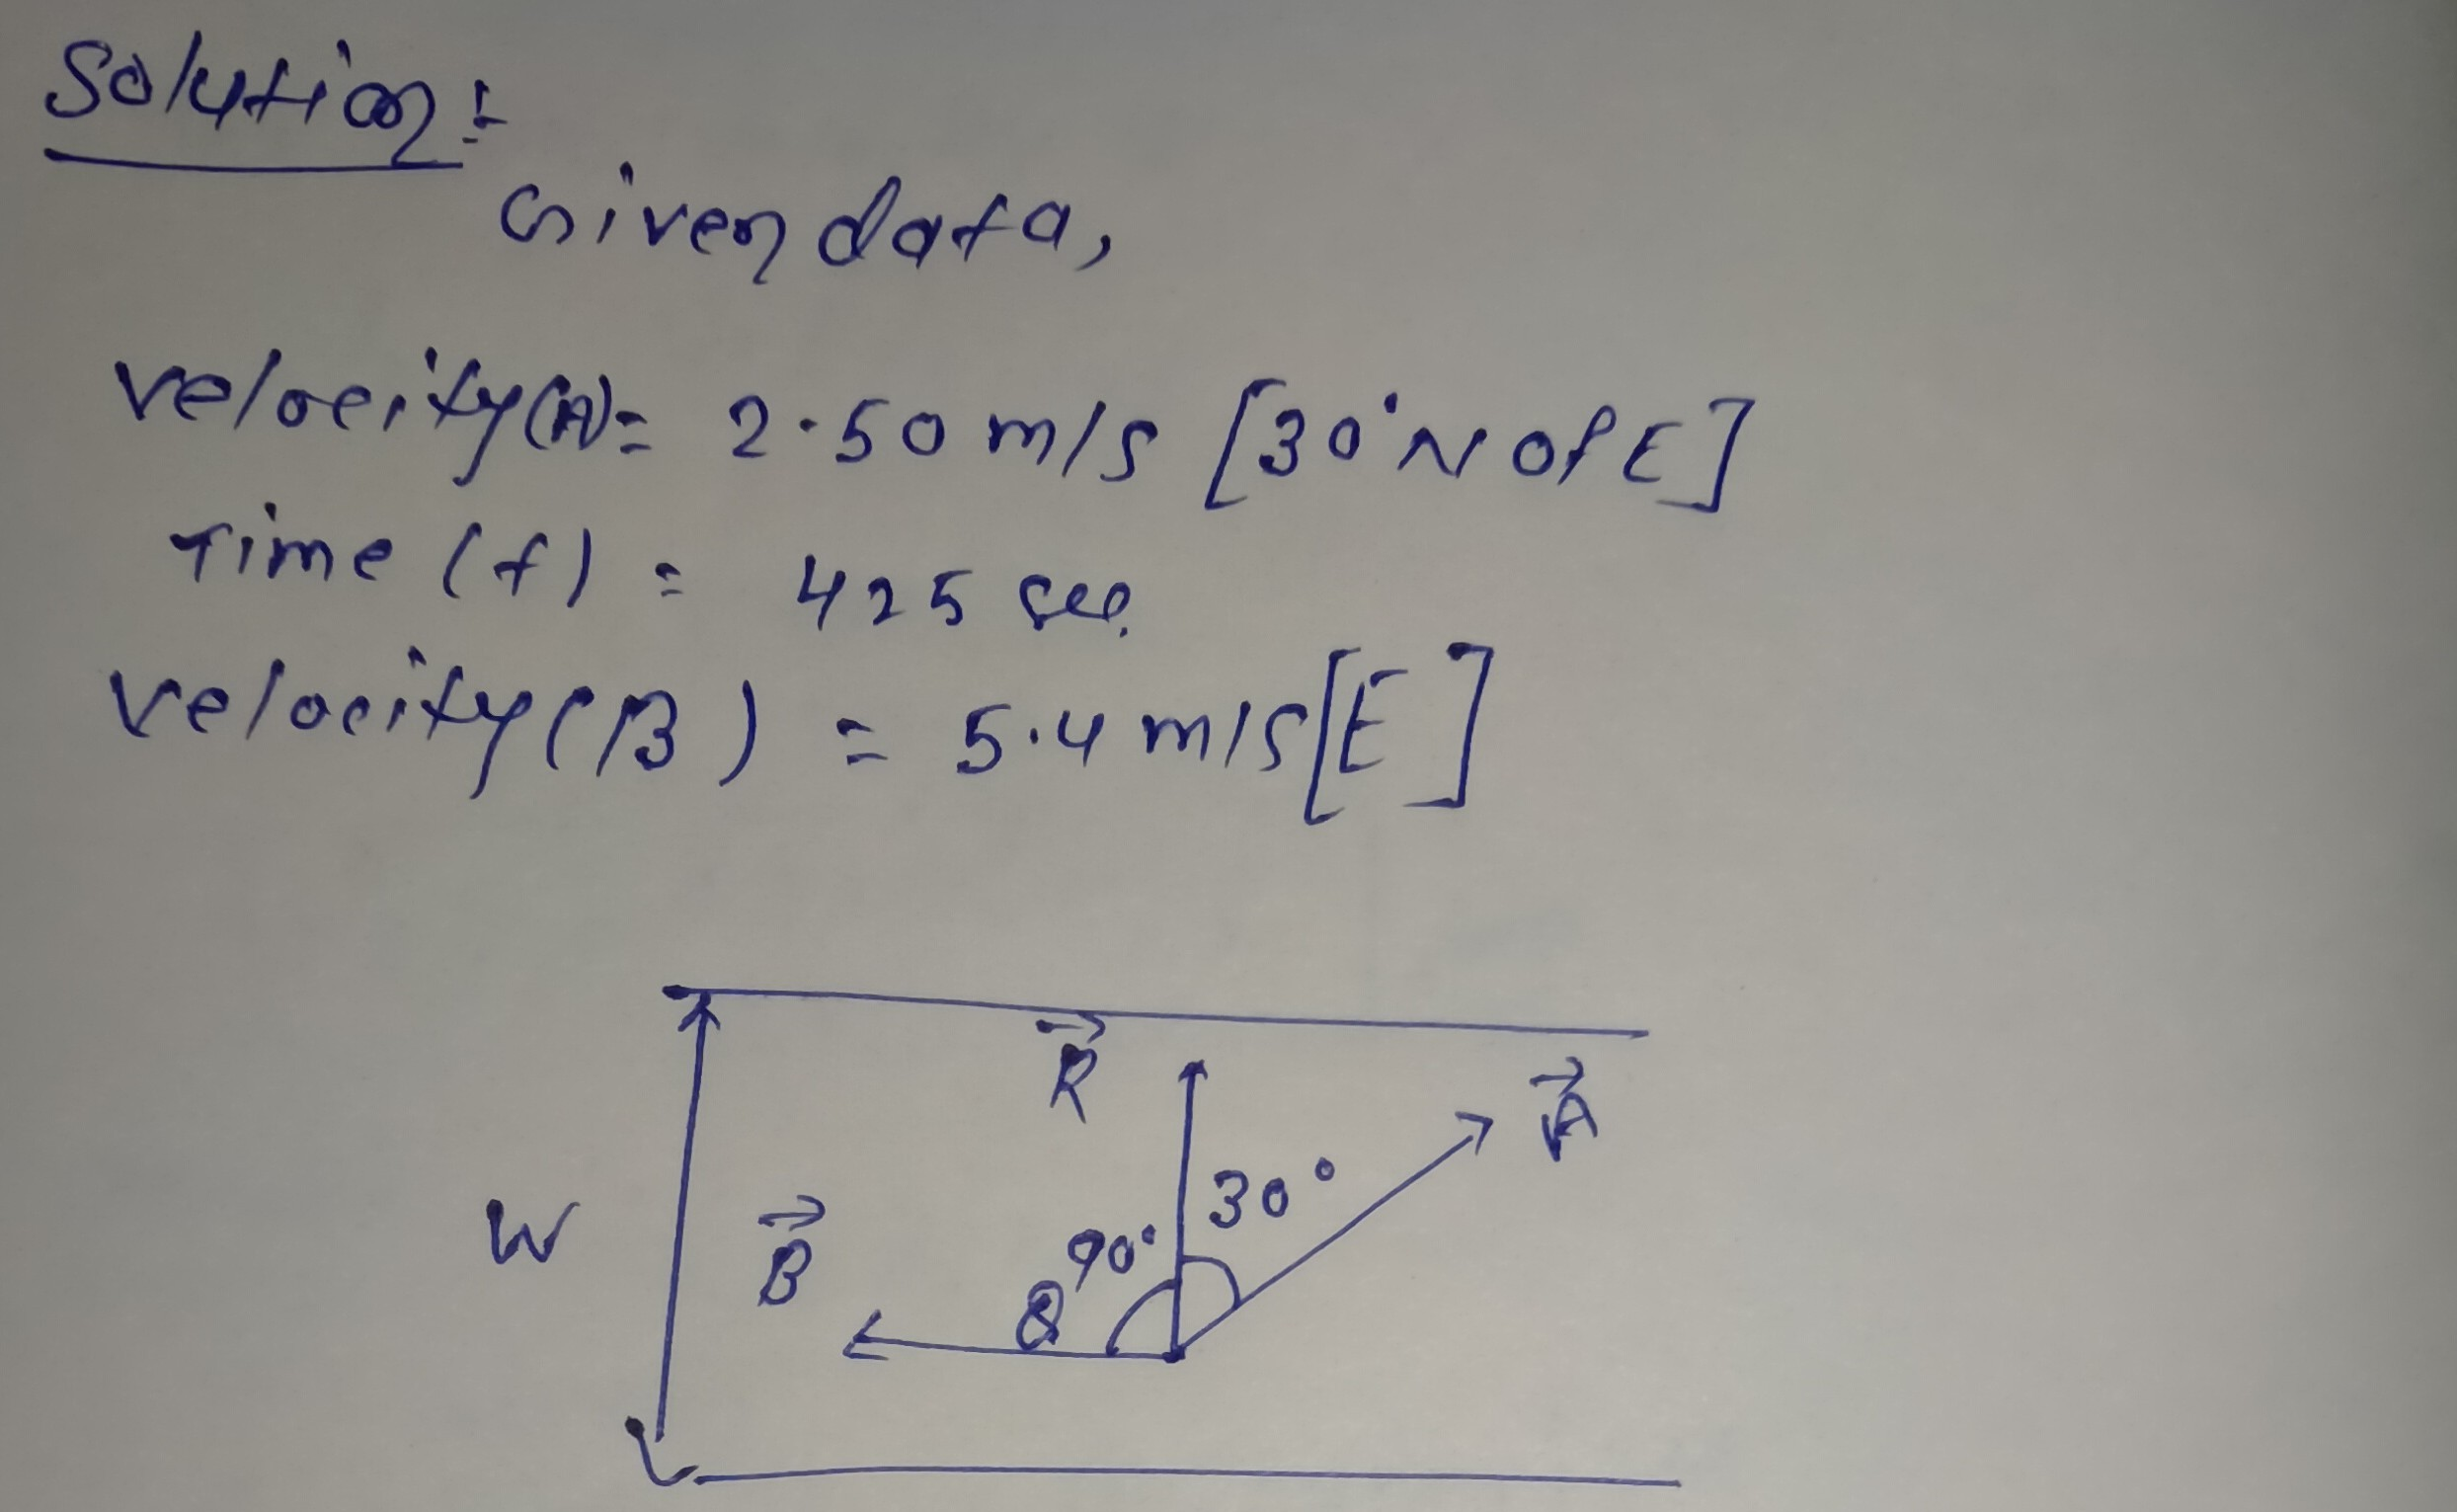 Solution:-
Given data,
velocity(A)= 2.50 m/s [30°N of E]
Time (t) = 425 sec.
velocity(B) = 5.4 m/s[E]
R
A
30°
W
B
90°
θ